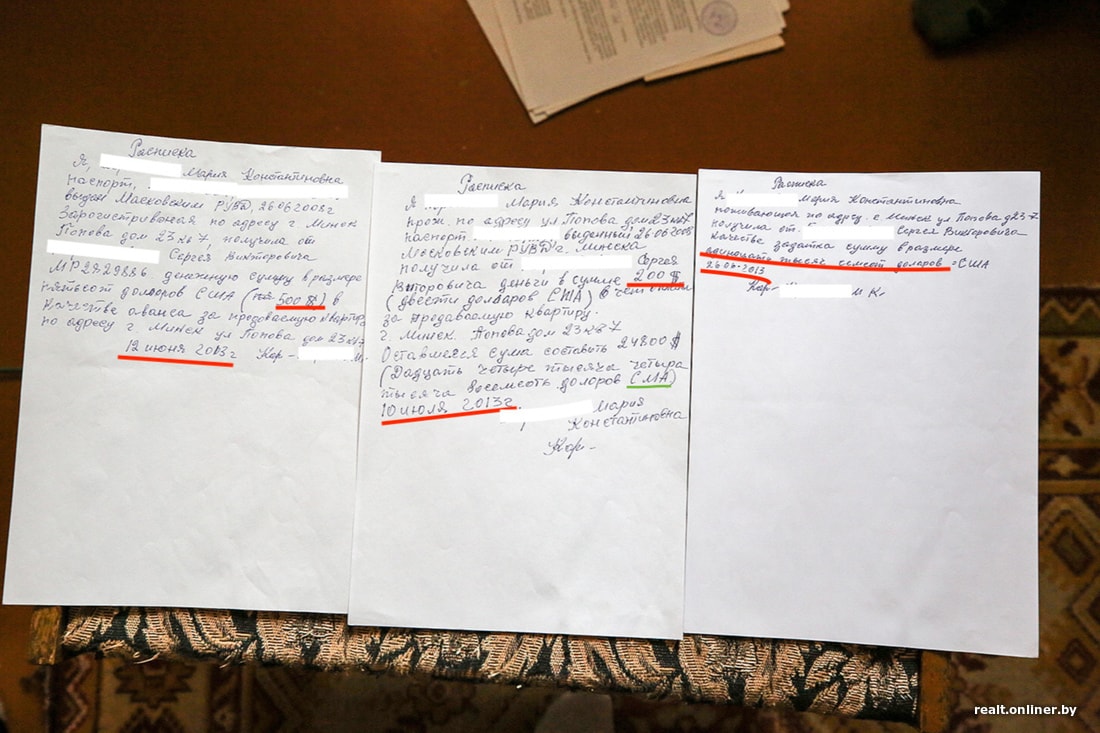 Расписка
Я, Мария Константиновна
паспорт,
выдан Московским РУВД 26062008г
Зарогистривоная по адресу г Минск
Попова дом 23 кв 7, получила от
Сергея Викторовича
МР2929886 денежную сумму в размере
пятьсот долларов США (500 $) в
качестве аванса за продоваемую квартиру
по адресу г Минск ул Попова дом 23 кв 7
12 июня 2013г Кор-
Расписка
Я Мария Константиновна
прож. по адресу ул Попова дом 23 кв 7
паспорт выденный 26 06 2008
Московским РУВД г. Минска
получила от Сергея
Второвича деньги в сумме 200 $
(двести долларов США) в счет
за продаваемую квартиру.
г. Минск. Попова дом 23 кв 7
Оставшеися сума составить 24800 $
(Дадцать четыре тысяча четыра
тысяча восемсоть доларов СМА)
10 июля 2013г. Мария
Константиновна
Кор-
Расписка
Я Мария Константиновна
поживающая по адресу г Минск ул Попова д 23-7
получила от Сергея Викторовича
качестве задатка сумму в размере
одинадцать тысяч семсот доларов США
2013
Кор- М К.
realt.onliner.by